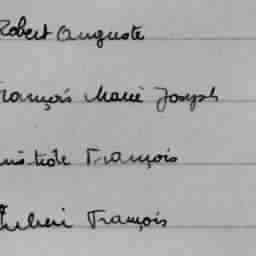 Robert Auguste
François Marie Joseph
Aristide François
François